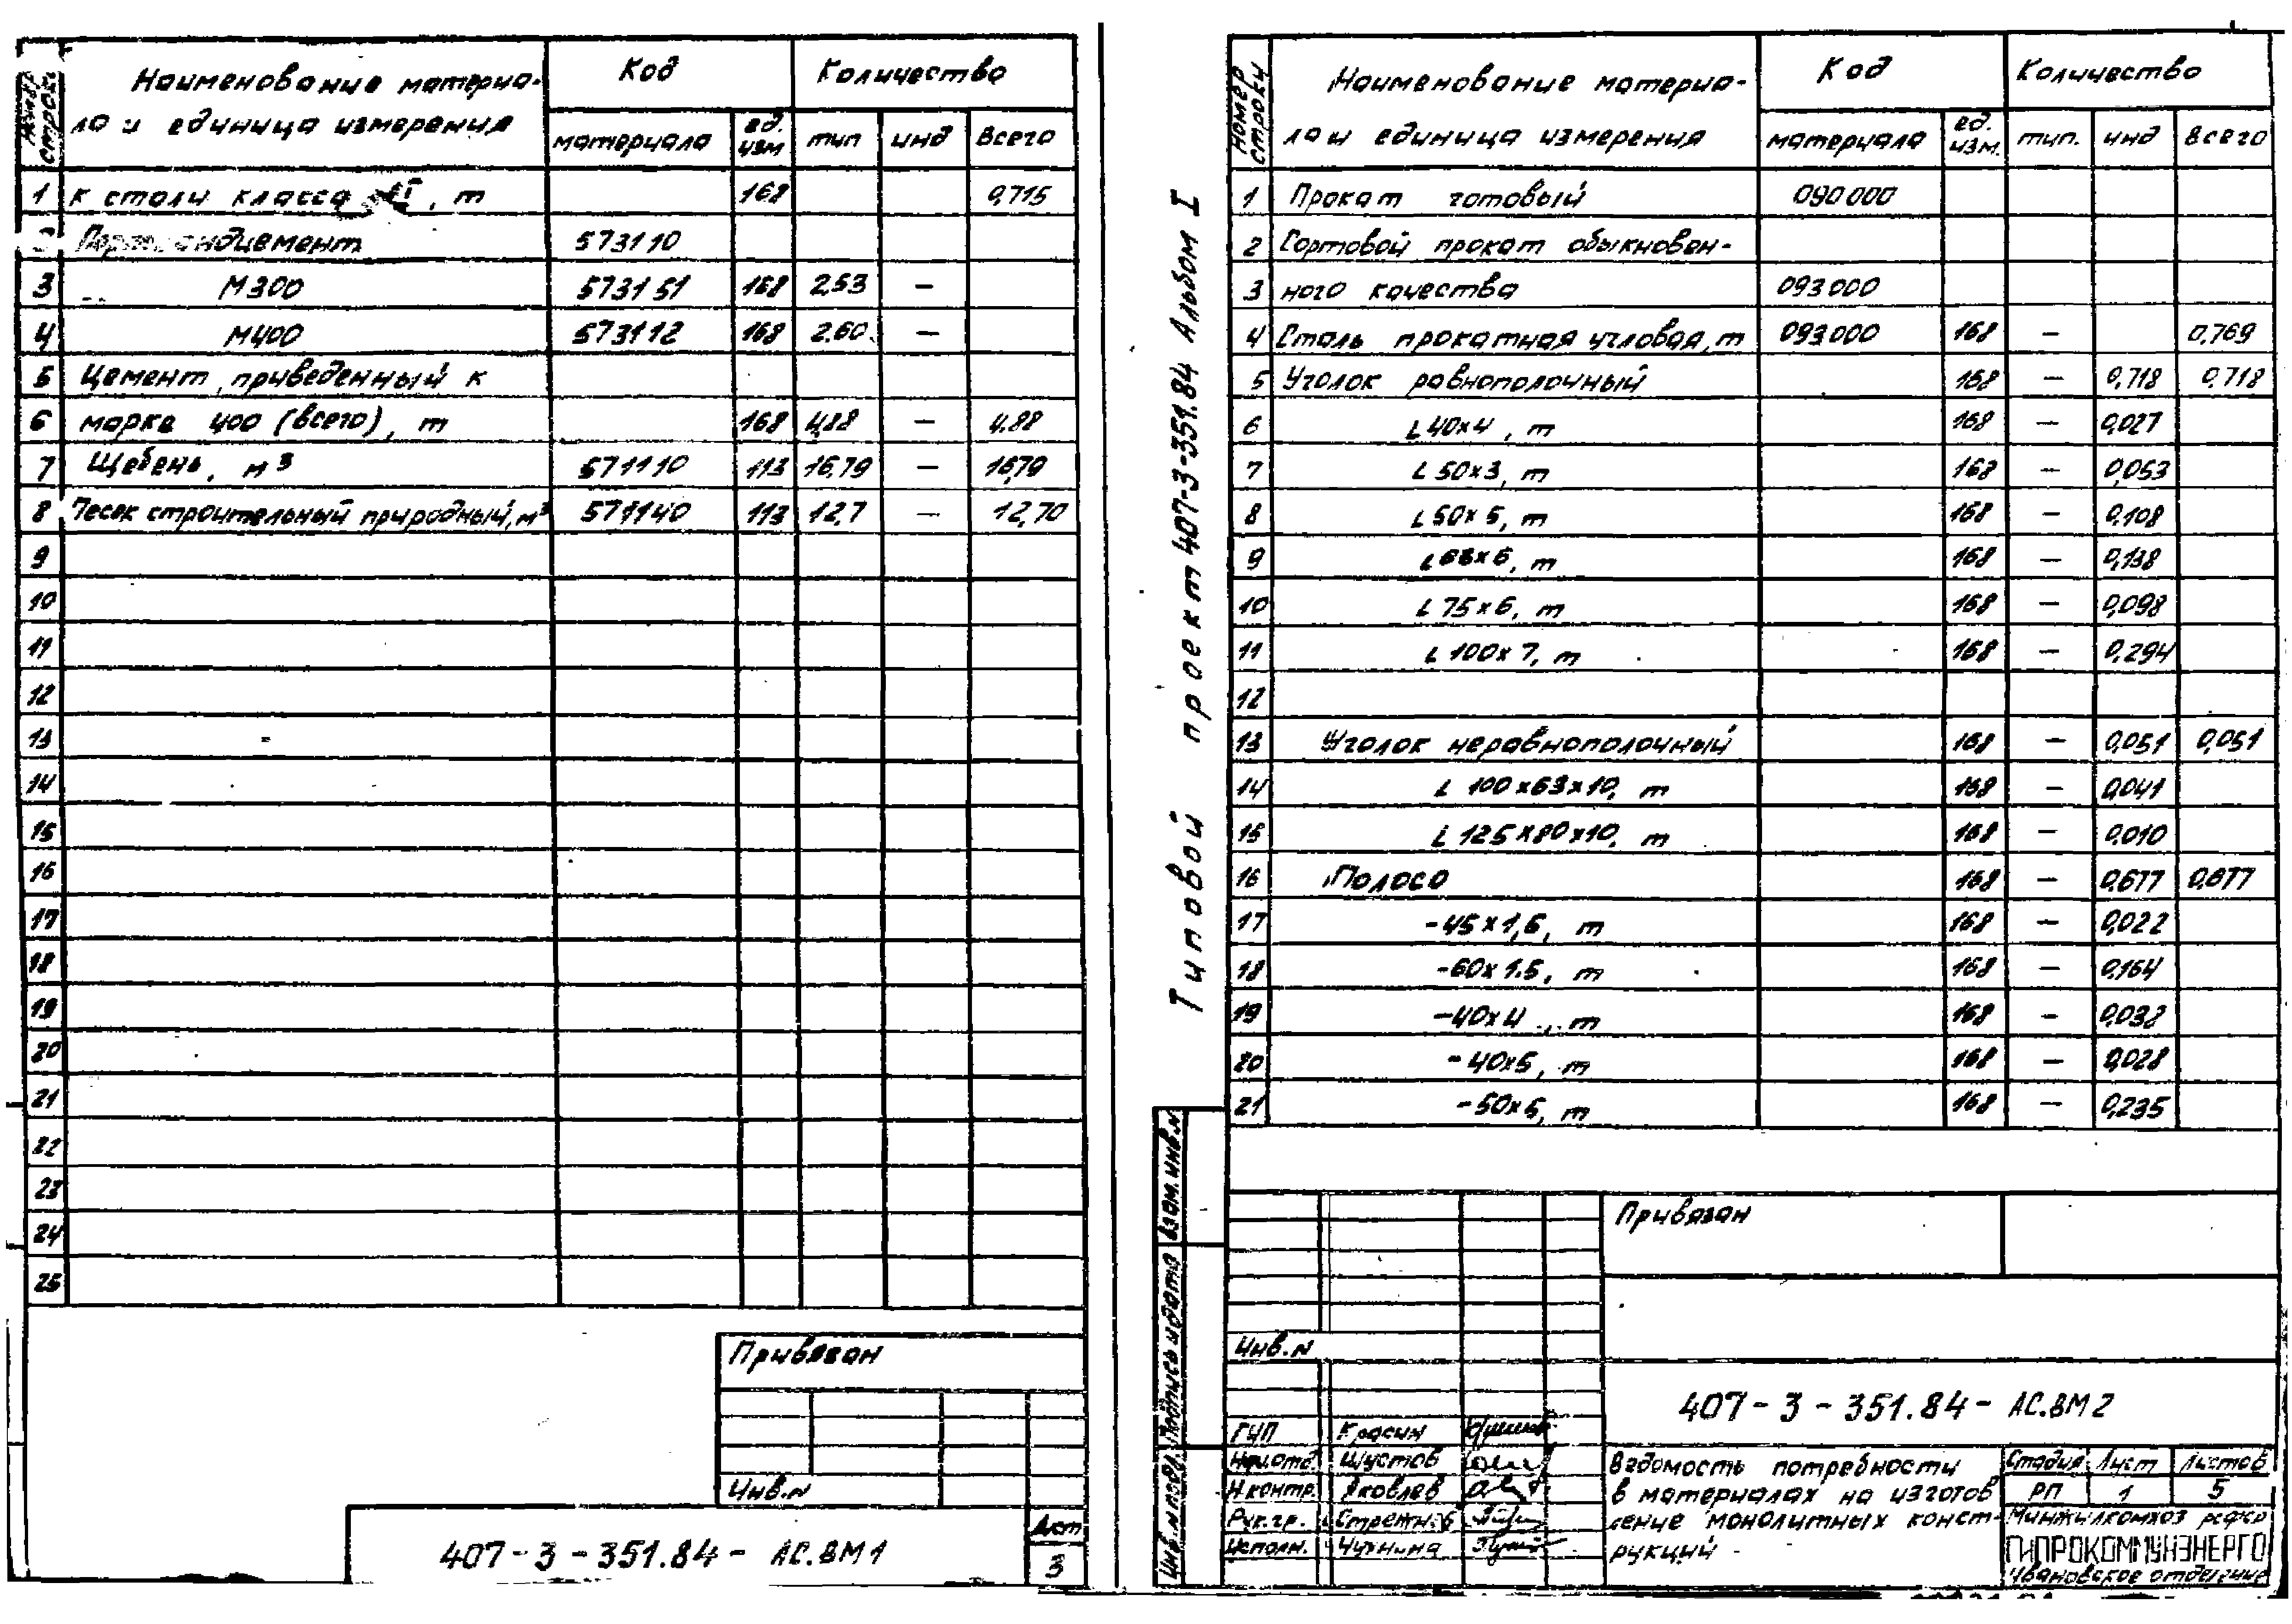 Номер строки | Наименование материа- | Код | Количество
ла и единица измерения | материала | ед. изм | тип | инд | Всего
1 к стали класса АI, т 168 0,715
2 573110
3 М300 573151 168 2,53 —
4 М400 573112 168 2,60 —
5 Цемент, приведенный к
6 марке 400 (всего), т 168 4,88 — 4.88
7 Щебень, м³ 571110 113 16,79 — 16,79
8 Песок строительный природный, м³ 571140 113 12,7 — 12,70
9
10
11
12
13
14
15
16
17
18
19
20
21
22
23
24
25
Привязан
Инв.N
407-3-351.84- АС.ВМ1
Лист
3
Типовой проект 407-3-351.84 Альбом I
Номер строки | Наименование материа- | Код | Количество
ла и единица измерения | материала | ед. изм. | тип. | инд | Всего
1 Прокат готовый 090000
2 Сортовой прокат обыкновен-
3 ного качества 093000
4 Сталь прокатная угловая, т 093000 168 — 0,769
5 Уголок равнополочный 168 — 0,718 0,718
6 L 40х4, т 168 — 0,027
7 L 50х3, т 168 — 0,053
8 L 50х5, т 168 — 0,108
9 L 63х6, т 168 — 0,138
10 L 75х6, т 168 — 0,098
11 L 100х7, т 168 — 0,294
12
13 Уголок неравнополочный 168 — 0,051 0,051
14 L 100х63х10, т 168 — 0,041
15 L 125х80х10, т 168 — 0,010
16 Полоса 168 — 0,677 0,677
17 -45х1,6, т 168 — 0,022
18 -60х1.5, т 168 — 0,164
19 -40х4, т 168 — 0,038
20 -40х5, т 168 — 0,028
21 -50х5, т 168 — 0,235
Взам. инв.N
Подпись и дата
Инв.N подл.
Привязан
Инв.N
407-3-351.84- АС.ВМ2
ГИП Красин
Нач.отд. Шустов
Н.контр. Яковлев
Рук.гр.
Исполн. Чухнина
Ведомость потребности
в материалах на изготов
ление монолитных конст-
рукций
Стадия Лист Листов
РП 1 5
Минжилкомхоз РСФСР
ГИПРОКОММУНЭНЕРГО
Ивановское отделение